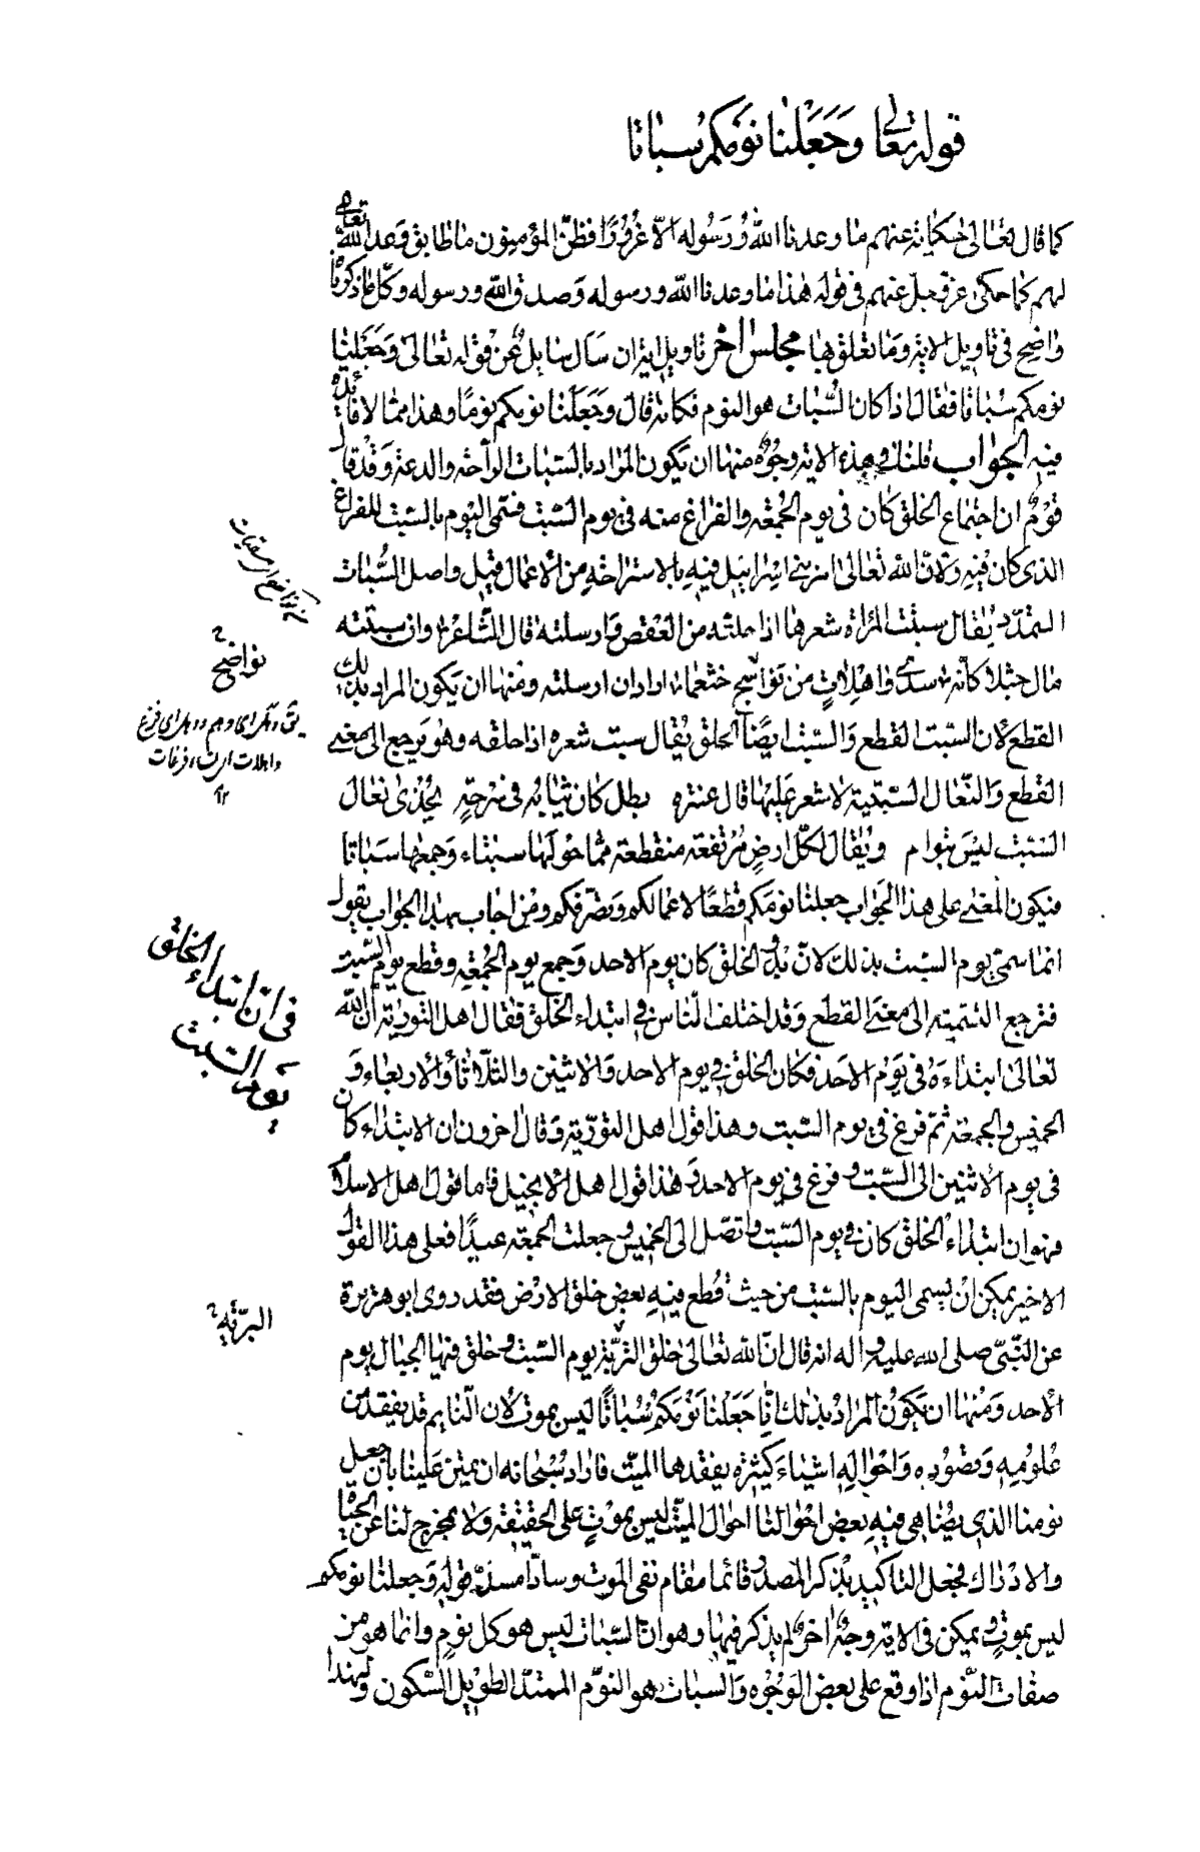 قوله تعالى وَجَعَلْنا نَومَكم سُباتا
كما قال تعالى حكاية عنهم ما وعدنا الله ورسوله الّا غرورًا فظنّ المؤمنون ما طابق وعد الله تعالى
لهم كما حكى عزّ وجلّ عنهم فى قوله هذا ما وعدنا الله ورسوله وصدق الله ورسوله وكلّ ما ذكرنا
واضح فى تاويل الاية وما تعلق بها مجلس اخر تاويل اية ان سال سايل عن قوله تعالى وجعلنا
نومكم سُباتا فقال اذا كان السُّبات هو النوم فكانه قال وجعلنا نومكم نومًا وهذا مما لا فائدة
فيه الجواب قلنا فى هذه الاية وجوهٌ منها ان يكون المراد بالسُّبات الراحة والدعة وقد قال
قومٌ ان اجتماع الخلق كان فى يوم الجمعة والفراغ منه فى يوم السّبت فسمّى اليوم بالسّبت للفراغ
الذى كان فيه ولانّ الله تعالى امر بنى اسرائيل فيه بالاستراحة من الاعمال قيل واصل السُّبات
التمدّد يُقال سبتت المراة شعرها اذا حلته من العقص وارسلته قال الشّاعر وان سبتته
مال جثلا كأنّه سدى واهلات من نواسج خثعما اراد ان ارسلته ومنها ان يكون المراد بذلك
القطع لان السّبت القطع والسّبت ايضًا الحلق يُقال سبت شعره اذا حلقه وهو يرجع الى معنى
القطع والنّعال السّبتية لا شعر عليها قال عنترة بطل كان ثيابه فى سرحةٍ يُحذى نعال
السّبت ليس بتوام ويُقال لكلّ ارضٍ مرتفعة منقطعة ممّا حولها سبتاء وجمعها سَباتا
فيكون المعنى على هذا الجواب جعلنا نومكم قطعًا لاعمالكم وتصرّفكم ومن اجاب بهذا الجواب يقول
انما سمى يوم السّبت بذلك لانّ بدو الخلق كان يوم الاحد وجمع يوم الجمعة وقطع يوم السّبت
فترجع التسمية الى معنى القطع وقد اختلف النّاس فى ابتداء الخلق فقال اهل التورية ان الله
تعالى ابتداءه فى يوم الاحد فكان الخلق فى يوم الاحد والاثنين والثلاثاء والاربعاء و
الخميس والجمعة ثمّ فرغ فى يوم السّبت وهذا قول اهل التّورية وقال اخرون ان الابتداء كان
فى يوم الاثنين الى السّبت وفرغ فى يوم الاحد وهذا قول اهل الانجيل فاما قول اهل الاسلام
فهو ان ابتداء الخلق كان فى يوم السّبت واتصل الى الخميس وجعلت الجمعة عيدًا فعلى هذا القول
الاخير يمكن انْ يسمى اليوم بالسّبت من حيث قُطع فيه بعض خلق الارض فقد روى ابو هريرة
عن النّبىّ صلى الله عليه واله انه قال انّ الله تعالى خلق التّربة يوم السّبت وخلق فيها الجبال يوم
الاحد ومنها ان يكون المراد بذلك انّا جَعَلْنا نَوْمَكم سُباتًا ليس بموت لان النّايم قد يفقد من
علومه وقصوده واحواله اشياء كثيرة يفقدها الميّت فاراد سُبحانه ان يمتنّ علينا بان جعل
نومنا الذى يضاهى فيه بعض احوالنا احوال الميّت ليس بموتٍ على الحقيقة ولا بمخرج لنا عن الحياة
والادراك فجعل التاكيد بذكر المصدر قائما مقام نفى الموت وسادّا مسدّ قوله وجعلنا نومكم
ليس بموت ويمكن فى الاية وجهٌ اخر لم يذكر فيها وهو انّ السّبات ليس هو كل نومٍ وانما هو من
صفات النّوم اذا وقع على بعض الوجوه والسبات هو النوّم الممتدّ الطويل السّكون ولهذا
نواضح
فى ان ابتداء الخلق
يوم السّبت
البرّيّة